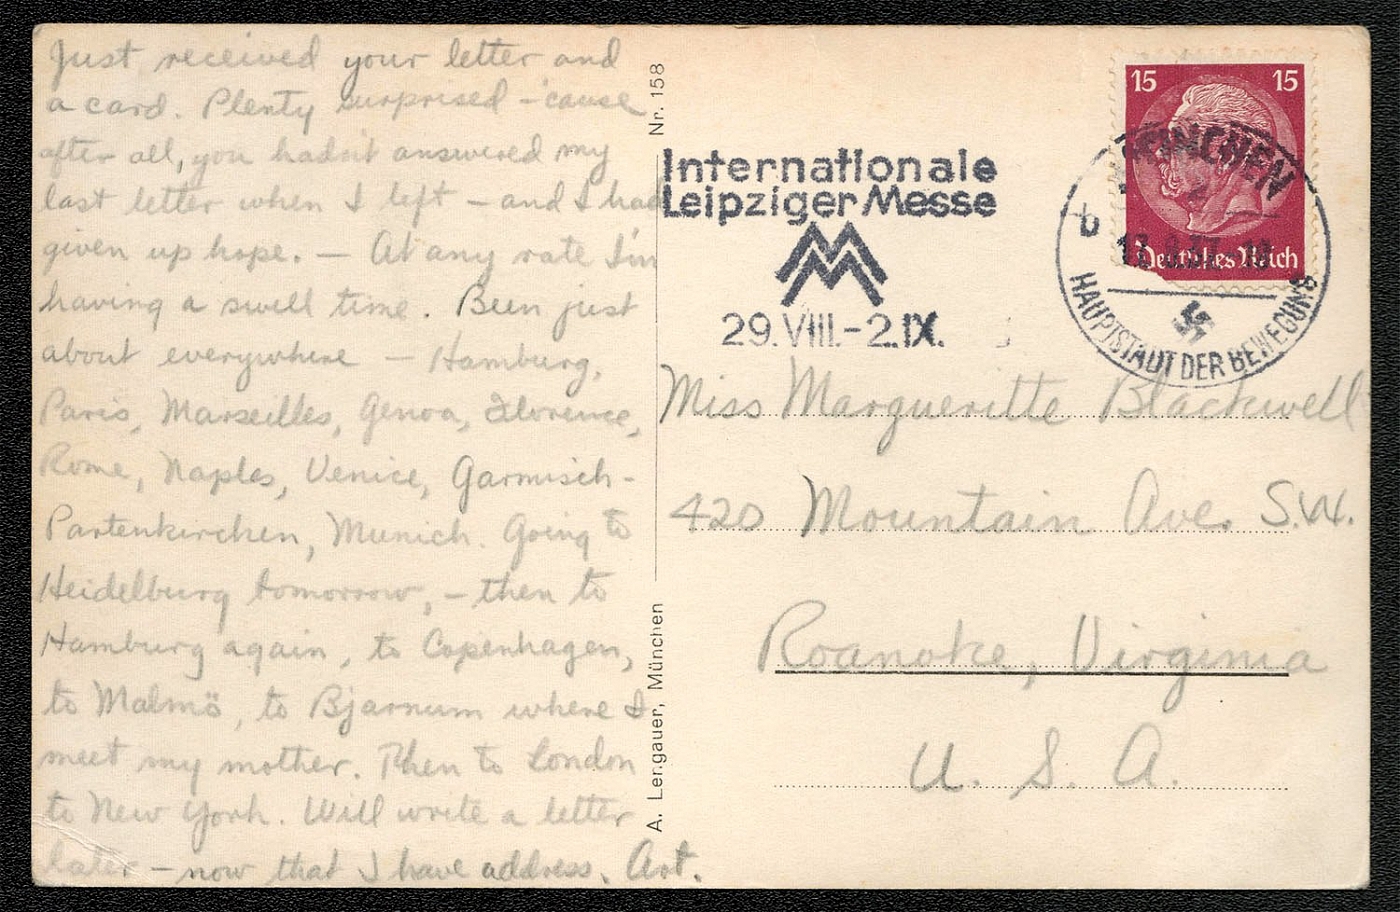 Just received your letter and
a card. Plenty surprised - 'cause
after all, you hadn't answered my
last letter when I left - and I had
given up hope. - At any rate I'm
having a swell time. Been just
about everywhere - Hamburg,
Paris, Marseilles, Genoa, Florence,
Rome, Naples, Venice, Garmisch-
Partenkirchen, Munich. Going to
Heidelburg tomorrow, - then to
Hamburg again, to Copenhagen,
to Malmö, to Bjarnum where I
meet my mother. Then to London
to New York. Will write a letter
later - now that I have address. Art.
Nr. 158
A. Lengauer, München
Internationale
Leipziger Messe
29. VIII. - 2. IX.
15 15
Deutsches Reich
MÜNCHEN
b
HAUPTSTADT DER BEWEGUNG
Miss Margueritte Blackwell
420 Mountain Ave. S.W.
Roanoke, Virginia
U. S. A.